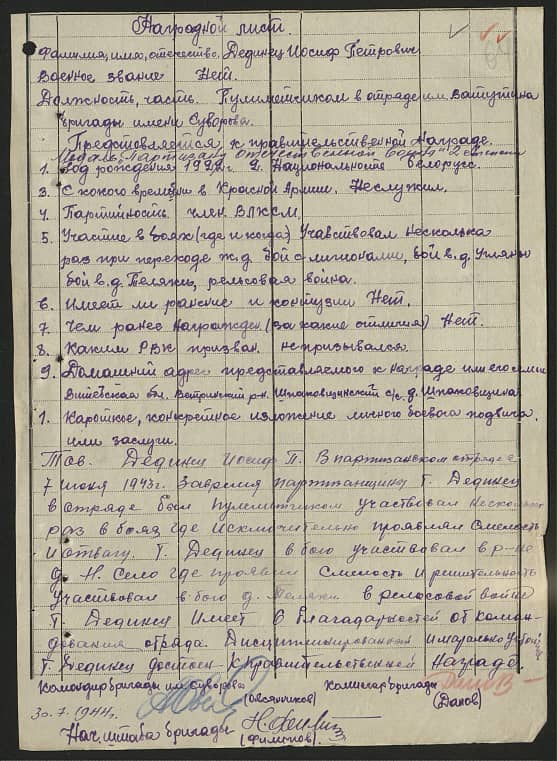 Наградной лист.
Фамилия, имя, отечество. Дединец Иосиф Петрович
Военное звание Нет.
Должность, часть. Пулиметчиком в отраде им. Ватутина
бригады имени Суворова.
Предстовляется к правительственной Награде.
Медаль "Партизану отечественной войны" 2 степени
1. Год рождения 192 г. 2. Национальность белорусс.
3. С какого времени в Красной Армии. Неслужил.
4. Партийность член ВЛКСМ.
5. Участие в боях (где и когда) Учавствовал несколька
раз при переходе ж.д бой с лигионами, бой в.д. Угляны
бой в.д. Пеляки, рельсовая война.
6. Имеет ли ранение и контузии Нет.
7. Чем ранее Награжден (за какие отличия) Нет.
8. Каким РВК призван. непризывался.
9. Домашний адрес представляемого к награде или его семьи
Витебская бл. Ветринский р-н. Шпаковщинский с/с. д. Шпаковщина
1. Кароткое, конкретное изложение личного боевого подвига
или заслуги.
Тов. Дединец Иосиф П. В партизанском отраде с
7 июня 1943г. Завремя партизанщину Т. Дединец
в отраде был пулиметчиком участвовал несколько
раз в боях где исключительно проявлял смелость
и отвагу. Т. Дединец в бою участвовал в р-не
д. Н. Село где проявил смелость и решительность
участвовал в бою д. Пеляки в релосовой войне
Т. Дединец имеет 6 благадарностей от коман-
дования отрада. Дисциплинированный и марально устой
Т. Дединец достоен к правительственной Награде
Командир бригады им. Суворова (Овсянников) Камисар бригады (Данов)
30.7.1944г.
Нач. штаба бригады (Филипов).